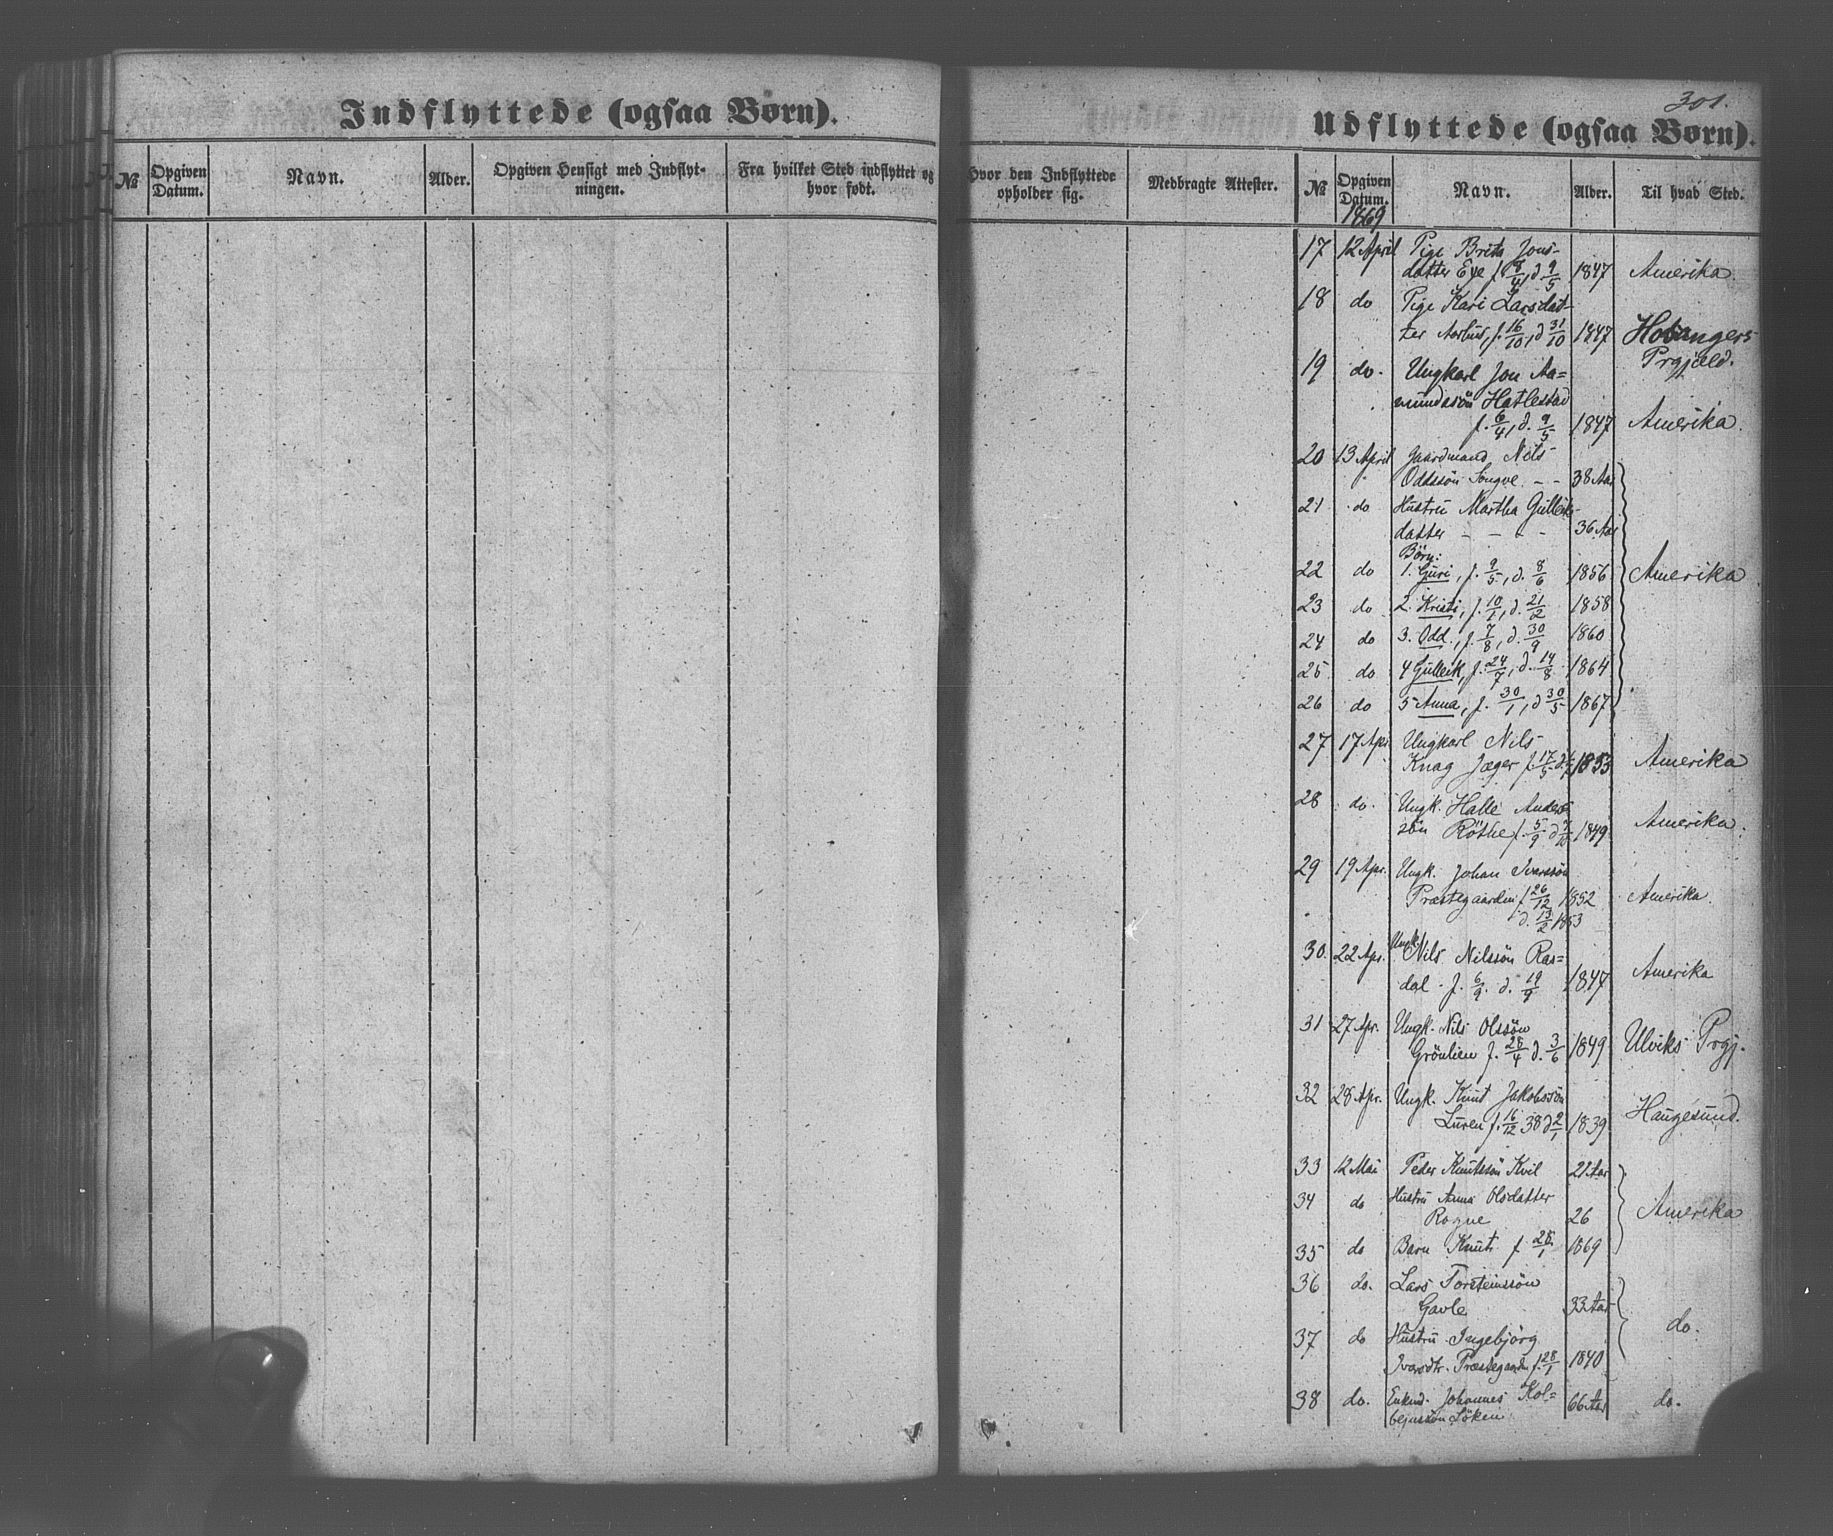 Indflyttede (ogsaa Børn).
№ Opgiven Datum. Navn. Alder. Opgiven Hensigt med Indflytningen. Fra hvilket Sted indflyttet og hvor født.
301.
Udflyttede (ogsaa Børn).
Hvor den Indflyttede opholder sig. Medbragte Attester. № Opgiven Datum. Navn. Alder. Til hvad Sted.
1869
17 12 April Pige Brita Jons-
datter Eye f. 8/4, d. 9/5 1847 Amerika.
18 do Pige Kari Larsdat-
ter Aarhus, f. 16/10, d 31/10 1847 Hosangers
Prgjæld.
19 do. Ungkarl Jon Aa=
mundssön Hatlestad
f. 6/4, d. 9/5 1847 Amerika.
20 13 April Gaardmand Nils
Oddssön Songve - - 38 Aar
21 do Hustru Martha Gulleiks
datter - - - - 36 Aar
Börn:
22 do 1. Guri, f. 9/5, d. 8/6 1856 Amerika
23 do 2. Kristi, f. 10/1, d. 21/2 1858
24 do 3. Odd, f. 7/8, d. 30/9 1860
25 do 4 Gulleik, f. 24/7, d. 14/8 1864
26 do 5 Anna, f. 30/1, d 30/5 1867
27 17 Apr. Ungkarl Nils
Knag Jæger f. 17/5 d. 1853 Amerika
28 do. Ungk. Halle Anders
sön Röthe f. 5/9 d 7/10 1849 Amerika.
29 19 Apr. Ungk. Johan Ivarssön
Præstegaarden f. 26/12 1852 Amerika.
d. 13/2 1853
30 22 Apr. Ungk. Nils Nilssön Ras=
dal f. 6/9. d. 19/9 1847 Amerika
31 27 Apr. Ungk. Nils Olssön
Grönlien f. 28/4 d. 3/6 1849 Ulviks Prgj.
32 28 Apr. Ungk. Knut Jakobssön
Luren f. 16/12 38 d 2/1 1839 Haugesund.
33 12 Mai Peder Knutssön Kvil 21 Aar
34 do Hustru Anna Olsdatter
Rogne 26 Amerika
35 do Barn Knut f 28/1 1869
36 do. Lars Torsteinssön
Gavle 33 Aar
do.
37 do Hustru Ingebjörg
Ivarsdtr. Præstegaarden f. 28/1 1840
38 do. Enkmd. Johannes Kol=
bejnssön Löken 66 Aar do.